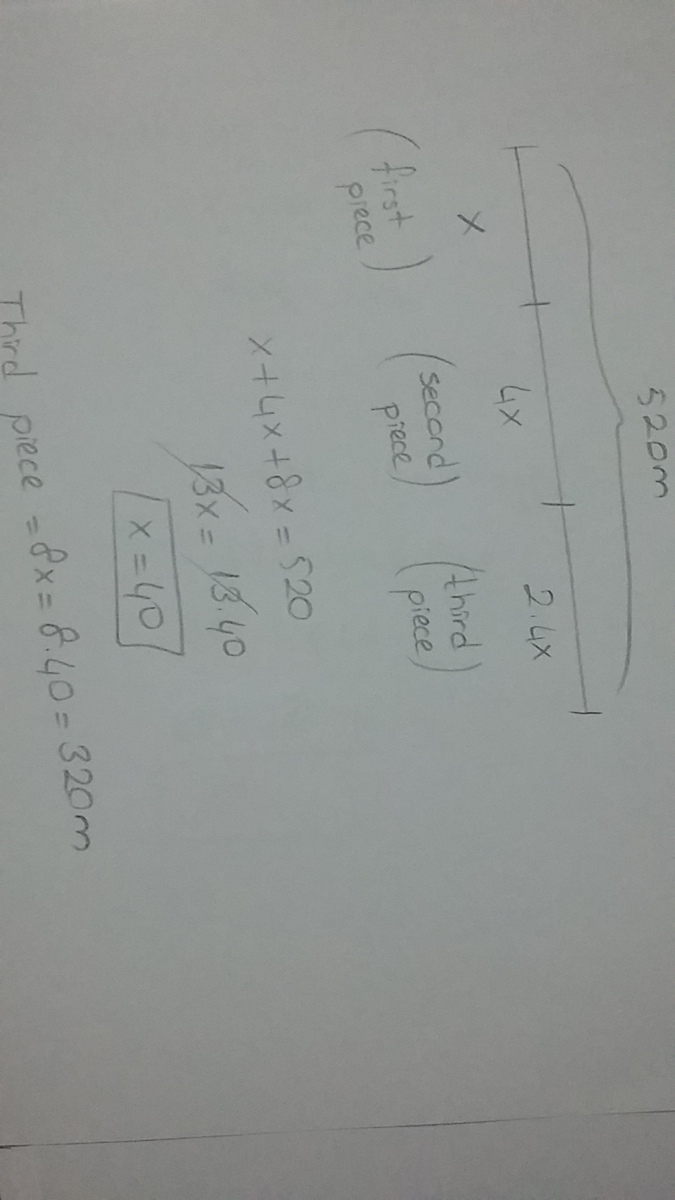 520m
x 4x 2.4x
(first piece) (second piece) (third piece)
x+4x+8x=520
13x=13.40
x=40
Third piece = 8x = 8.40 = 320m